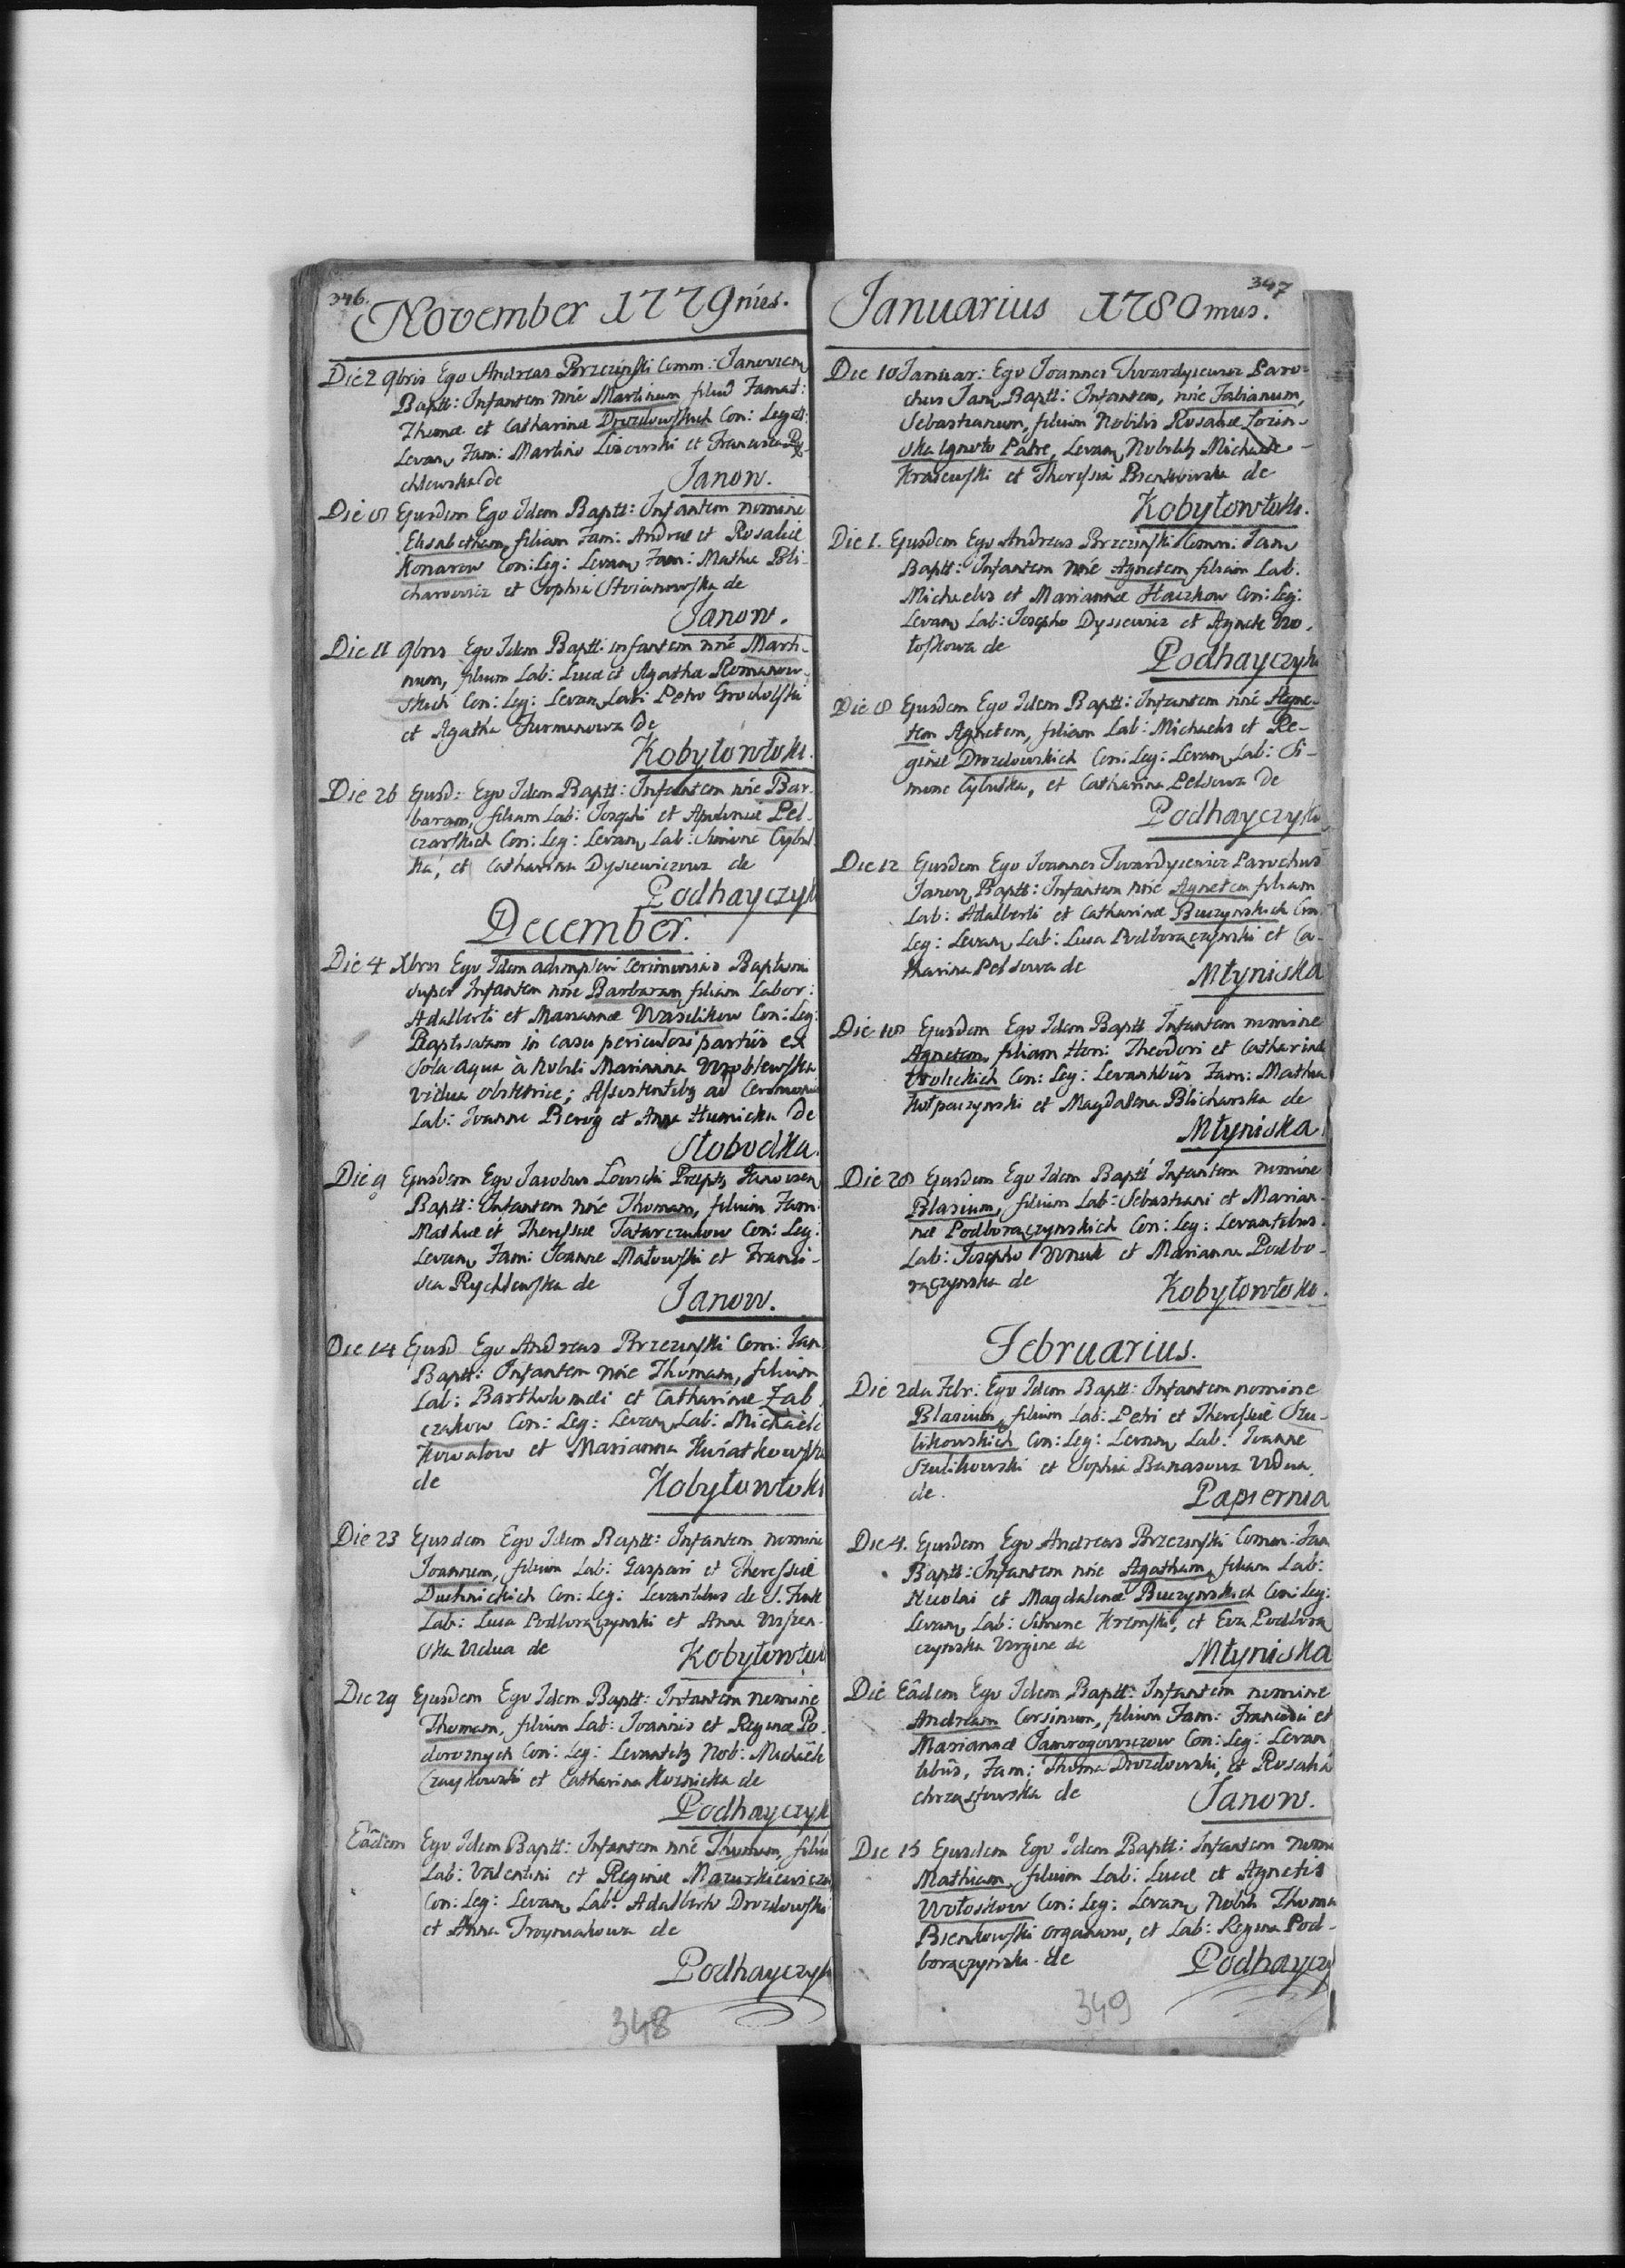 346.
November 1779nus.
Die 2 9bris Ego Andreas Brzezinski Comm: Janovien
Baptt: Infantem noie Martinum filiũ Famat:
Thomæ et Catharinæ Drozdowskich Con: Legitt:
Levan Fam: Martino Lisowski et Francisca Ry-
chlewska de
Janow.
Die 8 Ejusdem Ego Idem Baptt: Infantem nomine
Elisabetham filiam Fam: Andreæ et Rosaliæ
Konarow Con: Leg: Levan Fam: Mathia Bli-
charowicz et Sophia Stoianowska de
Janow.
Die 11 9bris Ego Idem Baptt: infantem noie Marti-
num, filium Lab: Lucæ et Agathæ Romanow-
skich Con: Leg: Levan Lab: Petro Grocholski
et Agatha Furmanowa de
Kobyłowłoki.
Die 26 Ejusd: Ego Idem Baptt: Infantem noie Bar-
baram, filiam Lab: Josephi et Apoloniæ Pel-
czarskich Con: Leg: Levan Lab: Simone Cybul
ka, et Catharina Dysiewiczowa de
Podhayczyk
December.
Die 4 Xbris Ego Idem adimplevi Cerimonias Baptismi
super Infantem noie Barbaram filiam Labor:
Adalberti et Mariannæ Wasilikow Con: Leg:
Baptisatam in casu periculosi partûs ex
sola aqua à Nobili Marianna Wroblewska
vidua obstetrice; Assistentibz ad Ceremonias
Lab: Joanne Berög et Anna Humicka de
Słobodka.
Die 9 Ejusdem Ego Jacobus Præpts Janovien
Baptt: Infantem noie Thomam, filium Fam:
Mathiæ et Theressiæ Tatarczukow Con: Leg:
Levan Fam: Joanne Matowski et Franci-
sca Rychlewska de
Janow.
Die 14 Ejusd Ego Andreas Brzezinski Com: Jan
Baptt: Infantem noie Thomam, filium
Lab: Bartholomæi et Catharinæ Zab
czakow Con: Leg: Levan Lab: Michaele
Kowalow et Marianna Kwiatkowska
de
Kobyłowłoki
Die 23 Ejusdem Ego Idem Baptt: Infantem nomine
Joannem, filium Lab: Gaspari et Theressiæ
Duchnickich Con: Leg: Levantibus de S. Fonte
Lab: Luca Podboraczynski et Anna
ska Vidua de
Kobyłowłok
Die 29 Ejusdem Ego Idem Baptt: Infantem nomine
Thomam, filium Lab: Joannis et Reginæ Po
doroznych Con: Leg: Levantibz Nob: Michaële
Czaykowski et Catharina Koznicka de
Podhayczyk
Eâdem Ego Idem Baptt: Infantem noie Thomam, filiũ
Lab: Valentini et Reginæ Mazurkiewiczow
Con: Leg: Levan Lab: Adalberto Drozdowski
et Anna Troyniakowa de
Podhayczyk
348
347
Januarius 1780mus.
Die 10 Januar: Ego Joannes Twardyiewicz Paro-
chus Jan Baptt: Infantem, noie Fabianum,
Sebastianum, filium Nobilis Rosaliæ
ska Ignoto Patre, Levan Nobilib Michaele
Krasewski et Theressia Bienkowska de
Kobyłowłoki.
Die 1. Ejusdem Ego Andreas Brzezinski Comm: Jan
Baptt: Infantem noie Agnetem filiam Lab:
Michaelis et Mariannæ Haczkow Con: Leg:
Levan Lab: Josepho Dysiewicz et Agnete Wo-
łoskowa de
Podhayczyki
Die 8 Ejusdem Ego Idem Baptt: Infantem noie Agne-
tem Agnetem, filiam Lab: Michaelis et Re-
ginæ Drozdowskich Con: Leg: Levan Lab: Si-
mone Cybulka, et Catharina Pelsowa de
Podhayczyki
Die 12 Ejusdem Ego Joannes Twardyiewicz Parochus
Janov Baptt: Infantem noie Agnetem filiam
Lab: Adalberti et Catharinæ Buczynskich Con
Leg: Levan Lab: Luca Podboraczynski et Ca-
tharina Pelsowa de
Młyniska
Die 18 Ejusdem Ego Idem Baptt Infantem nomine
Agnetem, filiam Hon: Theodori et Catharinæ
Woluckich Con: Leg: Levantibus Fam: Mathia
Kołpaczynski et Magdalena Blicharska de
Młyniska
Die 28 Ejusdem Ego Idem Baptt Infantem nomine
Blasium, filium Lab: Sebastiani et Marian-
næ Podboraczynskich Con: Leg: Levantibus
Lab: Josepho Wnuk et Marianna Podbo-
raczynska de
Kobyłowłoki.
Februarius.
Die 2da Febr: Ego Idem Baptt: Infantem nomine
Blasium, filium Lab: Petri et Theressiæ Szu-
likowskich Con: Leg: Levan Lab: Joanne
Szulikowski et Sophia Banasowa Vidua
de.
Papiernia
Die 4. Ejusdem Ego Andreas Brzezinski Comm: Jan
Baptt: Infantem noie Agatham, filiam Lab:
Nicolai et Magdalenæ Buczynskich Con: Leg:
Levan Lab: Simone Krzemski, et Eva Podbora
czynska Virgine de
Młyniska
Die Eâdem Ego Idem Baptt: Infantem nomine
Andream Corsinum, filium Fam: Francisci et
Mariannæ Jamrogowiczow Con: Leg: Levan
tibus, Fam: Thoma Drozdowski, et Rosalia
Chrząstowska de
Janow.
Die 15 Ejusdem Ego Idem Baptt: Infantem nomi
Mathiam, filium Lab: Lucæ et Agnetis
Wołosikow Con: Leg: Levan Nobili Thoma
Bienkowski organario, et Lab: Regina Pod-
boraczynska de
Podhayczy
349